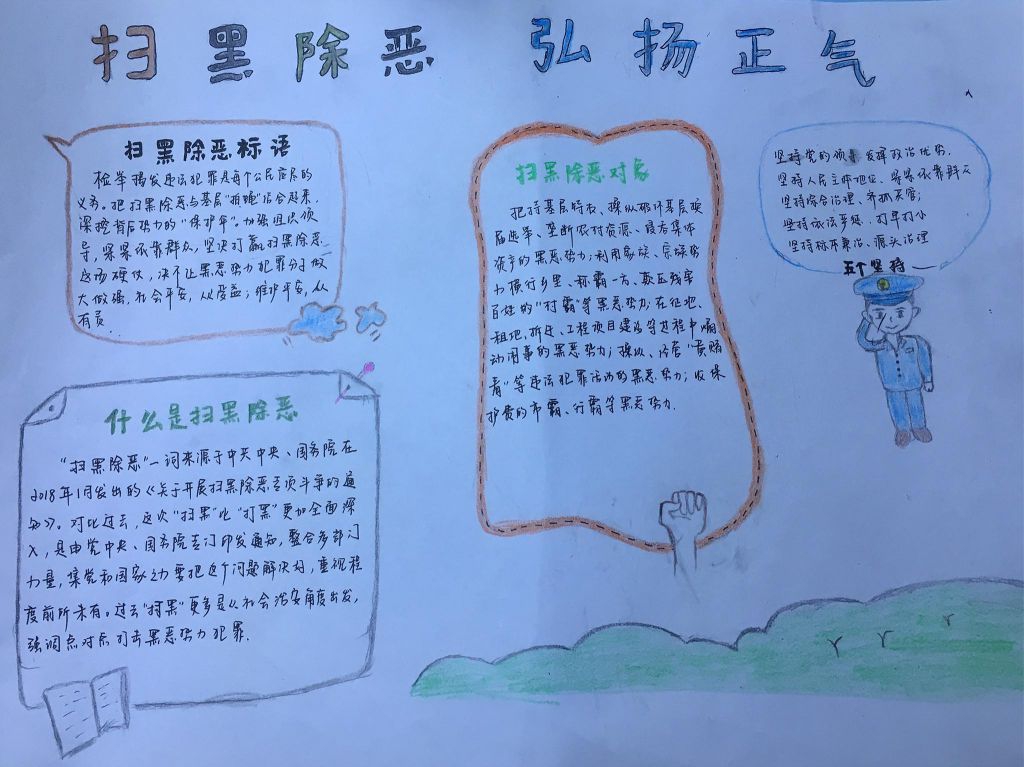 扫黑除恶 弘扬正气
扫黑除恶标语
检举揭发违法犯罪是每个公民应尽的
义务。把扫黑除恶与基层"拍蝇"结合起来,
深挖背后势力的"保护伞"。加强组织领
导,紧紧依靠群众,坚决打赢扫黑除恶
这场硬仗,决不让黑恶势力犯罪分子做
大做强,社会平安,人人受益;维护平安,人人
有责
什么是扫黑除恶
"扫黑除恶"一词来源于中共中央、国务院在
2018年1月发出的《关于开展扫黑除恶专项斗争的通
知》。对比过去,这次"扫黑"比"打黑"更加全面深
入,是由党中央、国务院专门印发通知,整合多部门
力量,集党和国家之力要把这个问题解决好,重视程
度前所未有。过去"扫黑"更多是从社会治安角度出发,
强调点对点打击黑恶势力犯罪.
扫黑除恶对象
把持基层政权、操纵破坏基层换
届选举、垄断农村资源、侵吞集体
资产的黑恶势力;利用家族、宗族势
力横行乡里、称霸一方、欺压残害
百姓的"村霸"等黑恶势力;在征地、
租地、拆迁、工程项目建设等过程中煽
动闹事的黑恶势力;操纵、经营"黄赌
毒"等违法犯罪活动的黑恶势力;收保
护费的市霸、行霸等黑恶势力.
坚持党的领导 发挥政治优势,
坚持人民主体地位、紧紧依靠群众
坚持综合治理、齐抓共管;
坚持依法严惩、打早打小
坚持标本兼治、源头治理
五个坚持